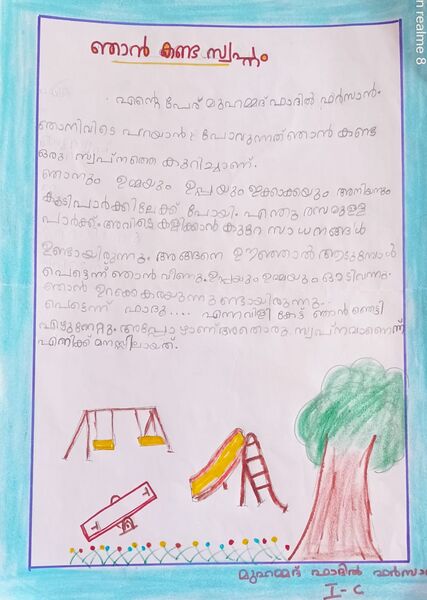 ഞാൻ കണ്ട സ്വപ്നം
എന്റെ പേര് മുഹമ്മദ് ഫാദിൽ ഫർസാൻ.
ഞാനിവിടെ പറയാൻ പോവുന്നത് ഞാൻ കണ്ട
ഒരു സ്വപ്നത്തെ കുറിച്ചാണ്.
ഞാനും ഉമ്മയും ഉപ്പയും ഇക്കാക്കയും അനിയനും
കൂടി പാർക്കിലേക്ക് പോയി. എന്തു രസമുള്ള
പാർക്ക്. അവിടെ കളിക്കാൻ കുറേ സാധനങ്ങൾ
ഉണ്ടായിരുന്നു. അങ്ങനെ ഊഞ്ഞാൽ ആടുമ്പോൾ
പെട്ടെന്ന് ഞാൻ വീണു. ഉപ്പയും ഉമ്മയും ഓടി വന്നു.
ഞാൻ ഉറക്കെ കരയുന്നുണ്ടായിരുന്നു.
പെട്ടെന്ന് ഫാദു.... എന്ന വിളി കേട്ട് ഞാൻ ഞെട്ടി
എഴുന്നേറ്റു. അപ്പോഴാണ് അതൊരു സ്വപ്നമാണെന്ന്
എനിക്ക് മനസ്സിലായത്.
മുഹമ്മദ് ഫാദിൽ ഫർസാ
I-C
n realme 8